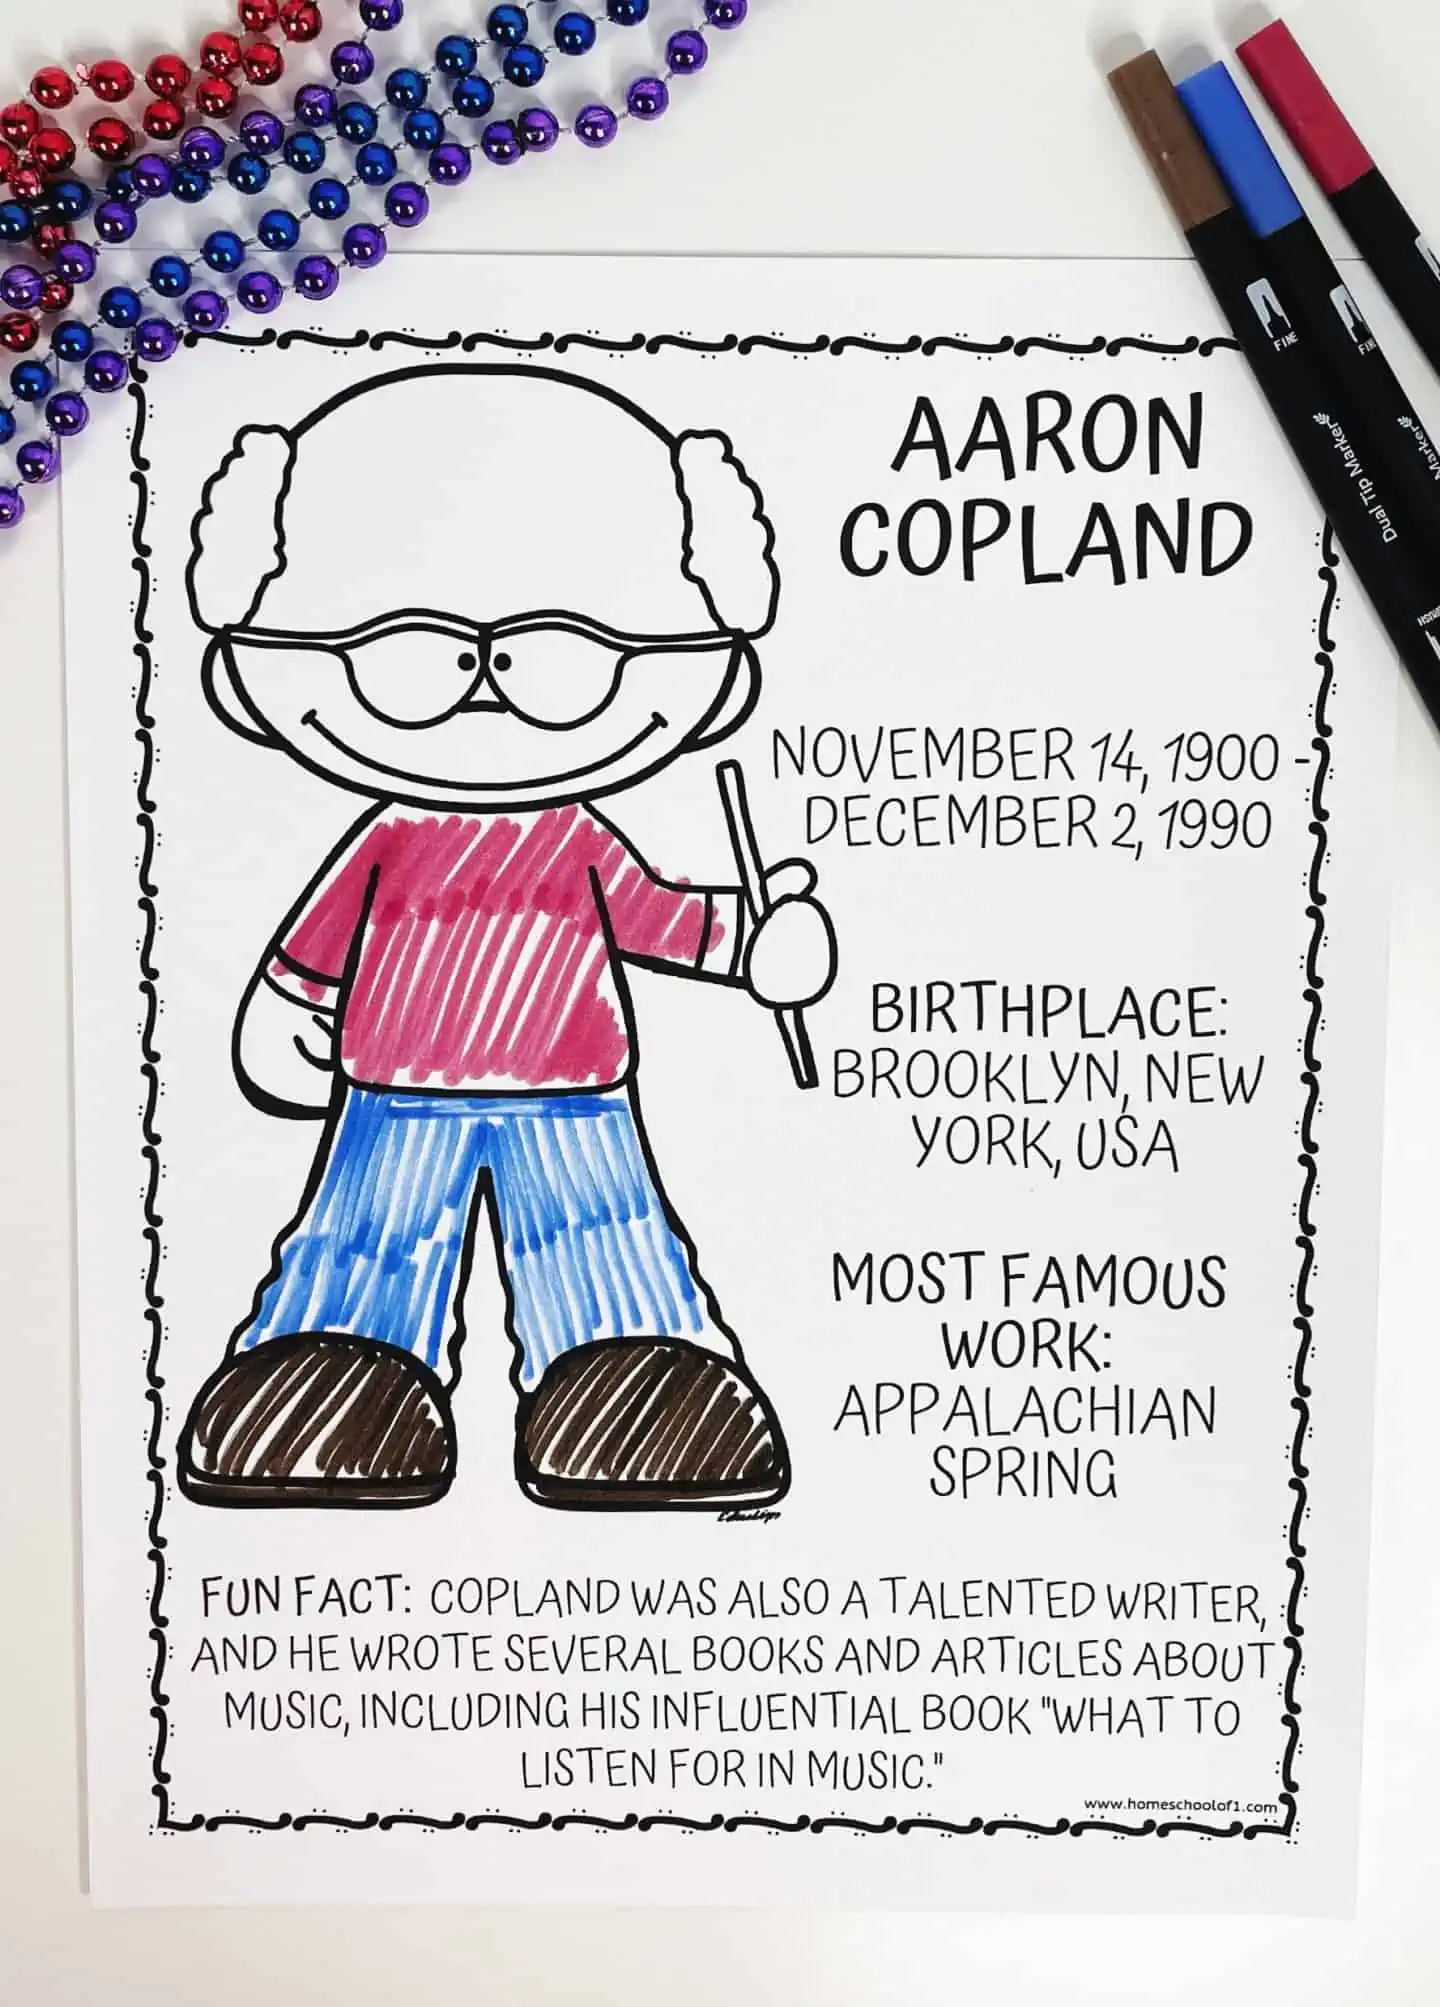 AARON
COPLAND
NOVEMBER 14, 1900 -
DECEMBER 2, 1990
BIRTHPLACE:
BROOKLYN, NEW
YORK, USA
MOST FAMOUS
WORK:
APPALACHIAN
SPRING
FUN FACT: COPLAND WAS ALSO A TALENTED WRITER,
AND HE WROTE SEVERAL BOOKS AND ARTICLES ABOUT
MUSIC, INCLUDING HIS INFLUENTIAL BOOK "WHAT TO
LISTEN FOR IN MUSIC."
www.homeschoolof1.com
FINE
Dual Tip Marker
FINE
Marker